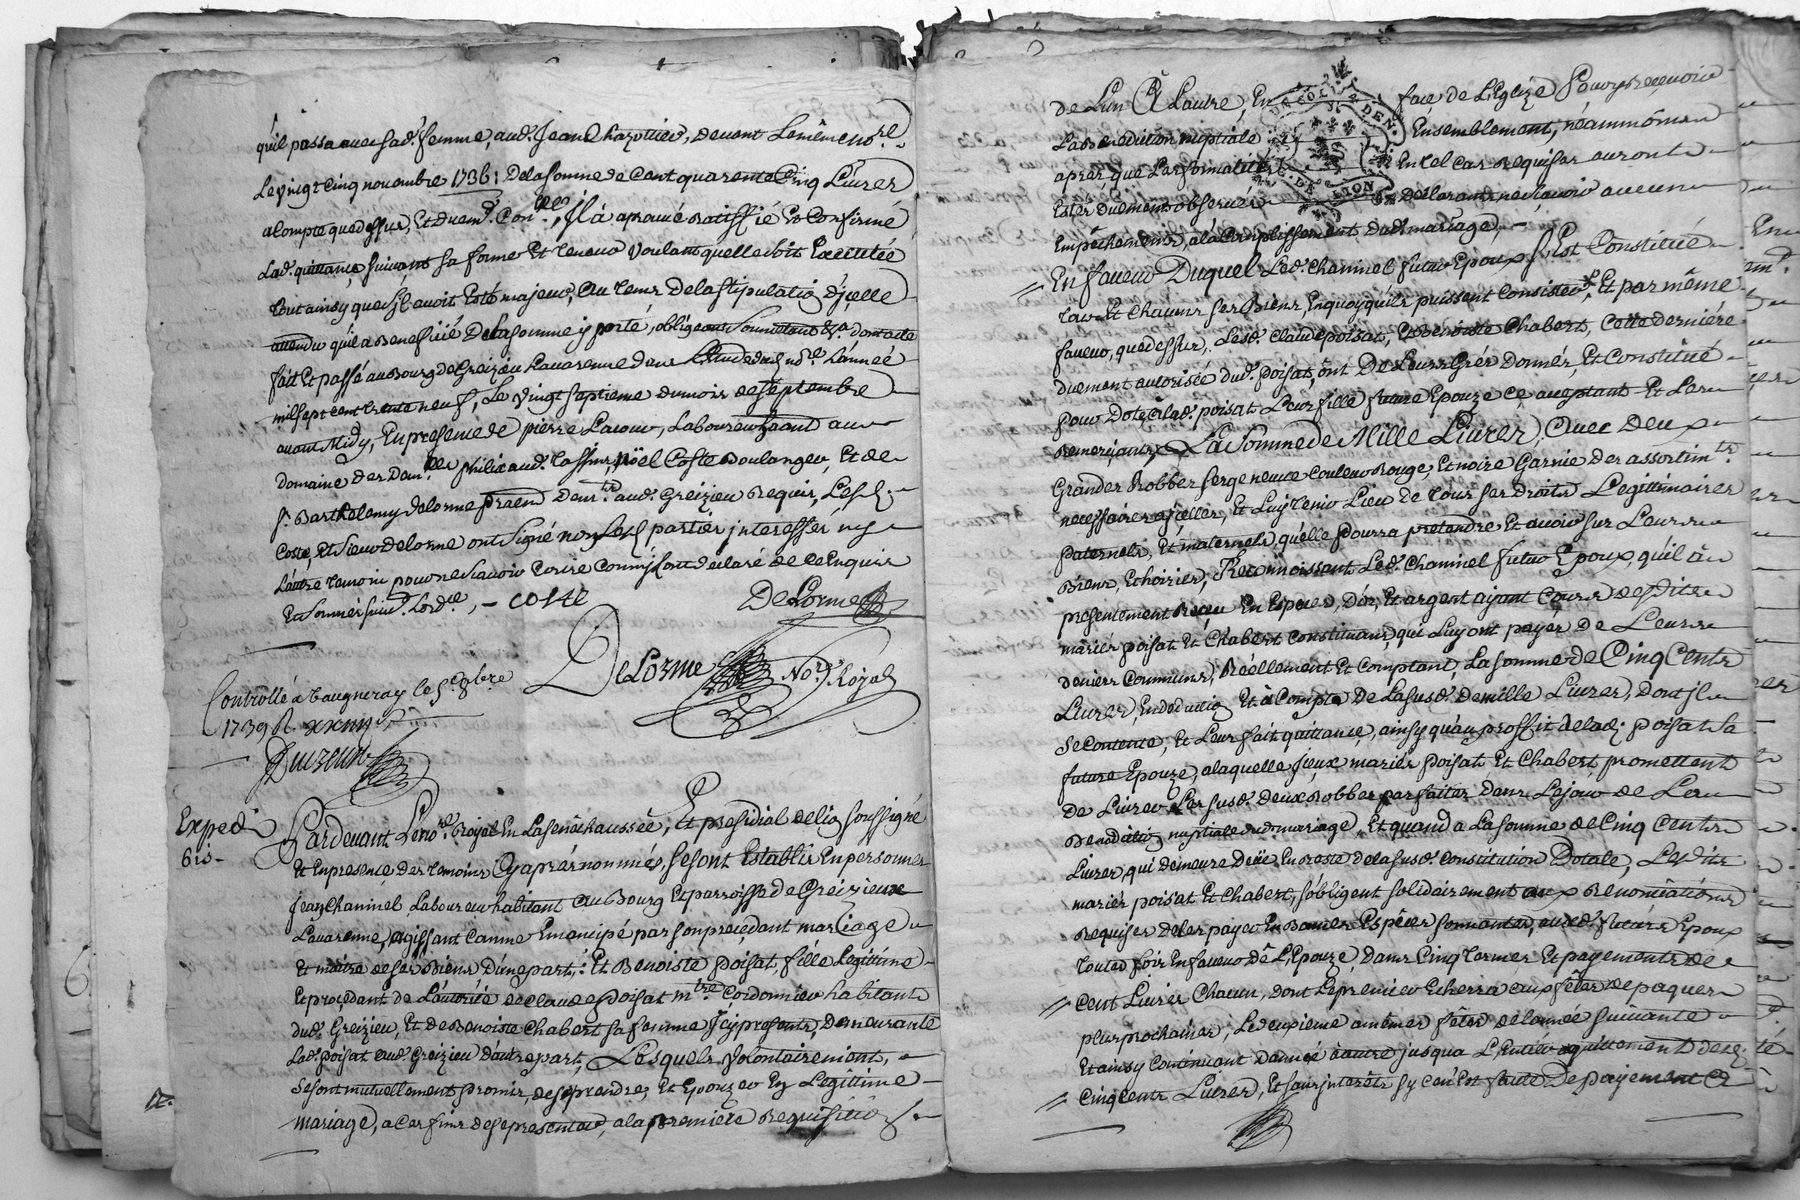 qu'il passa avec sad. femme, aud. Jean Chazottier, devant Le même no.re
Le vingt cinq novembre 1736: De la somme de Cent quarente Cinq Livres
a Compte que dessus, Et duem.t Con.lé, Jl a aprouvé Ratiffié Et Confirmé
Lad. quittance, suivant sa forme Et teneur Voulant qu'elle soit Executée
tout ainsy que s'il avoit Esté majeur, au tems De la stipulatio d'jcelle
attendu qu'il a Beneficié De la somme y porté, obligeant Soumettant &.a dont acte
fait Et passé au Bourg de Greizieu Lavarenne dans L'Etude dud. no.re L'année
mil sept cent trente neuf, Le vingt septieme du mois de septembre
avant Midy, En presence de pierre Lacour, Laboureur au
domaine des Dem.lles philix aud. Noël Coste Boulanger, Et de
s.r Barthelemy delorme praen Dem.t aud. Greizieu Requis, Les s.
Coste, Et sieur delorme ont signé non Les parties jnteressés ny
L'autre temoin pour ne sçavoir Ecrire Comm'jls ont declaré de ce Enquis
Et sommés suiv.t L'ord.ce, - Coste
DeLorme
DeLorme No.re Royal
Controllé à Vaugneray le 5.e 8bre
1739 R. xxiiii s
Duzeun
Exped.
Gis-
Pardevant Le no.re Royal En La senéchaussée, Et presidial de lio soussigné
Et En presence des temoins Cy aprés nommés, se sont Establis En personnes
Jean Chaninel Laboureur habitant au Bourg Et parroisse de Greizieux
Lavarenne, agissant Comme Emancipé par son precedant mariage
Et maitre de ses Biens D'une part,: Et Benoiste poisat, fille Legitime
Et procédant de L'autorité de claude poisat m.tre Cordonnier habitant
dud. Greizieu, Et de Benoiste Chabert sa femme Jcy presents, Demeurante
Lad. poisat aud. Greizieu D'autre part, Lesquels Volontairement,
se sont mutuellement promis, de se prendre, Et Epouzer En Legittime
mariage, a ces fins de se presenter, a la premiere Requisitio
de L'un A Lautre, En face de L'Eglize Pour y Recevoir
La Benediction nuptiale Ensemblement, néammoins
aprés, que Les formalités En tel cas Requises auront
Estés duement observées Declarants ne sçavoir aucuns
Empêchements, a la Complissement Dud. mariage, -
En faveur Duquel Led. Chaninel futur Epoux s'Est Constitué
tous Et Chacuns ses Biens, En quoy qu'ils puissent Consister, Et par même
faveur, que dessus, Lesd. Claude poisat, Et Benoiste Chabert, Cette derniere
duement autorisée dud. poisat, ont De Leurs Grés Donnés, Et Constitué
pour Dote à lad. poisat Leur fille future Epouze Ce aceptant Et Les
Remerciant, La somme de Mille Livres, Avec Deux
Grandes Robbes serge neuve Couleur Rouge, Et noire Garnie des assortim.ts
necessaires a jcelles, Et Luy tenir Lieu de tous ses Droits Legittimaires
paternels, Et maternels, qu'elle Pourra pretendre Et avoir sur Leurs
Biens, Et hoiries, Reconnoissant Led. Chaninel futur Epoux, qu'il a
presentement Reçeu En Especes, D'or, Et argent ayant Cours desdits
mariés poisat Et Chabert Constituans, qui Luy ont payés De Leurs
deniers Communs, Réellement Et Comptant, La somme de Cinq Cents
Livres, En deductio Et à Compte De La susd. de mille Livres, Dont jl
se Contente, Et Leur fait quittance, ainsy qu'au proffit de lad. poisat sa
future Epouze, a laquelle Jceux mariés poisat Et Chabert promettent
De Livrer Les susd. deux Robbes parfaites Dans Lejour de Leur
Benedictio nuptiale dud. mariage, Et quand a La somme de Cinq Cents
Livres, qui demeure Deüe En Reste de la susd. Constitution Dotale, Lesdits
mariés poisat Et Chabert, s'obligent solidairement aux Renonciations
Requises de les payer En Bonnes Espéces sonnantes, auxd. futurs Epoux
toutes fois En faveur De L'Epouze, Dans Cinq termes Et payements de
Cent Livres Chacun, dont Le premier Echerra aux fêtes de paques
plus prochaines, Le deuxieme a mêmes fêtes de L'année suivante
Et ainsy Continuant d'année à autre jusqua L'Entier aquittement desd.
Cinq Cents Livres, Et sans jnterêts sy ce n'Est faute De payement